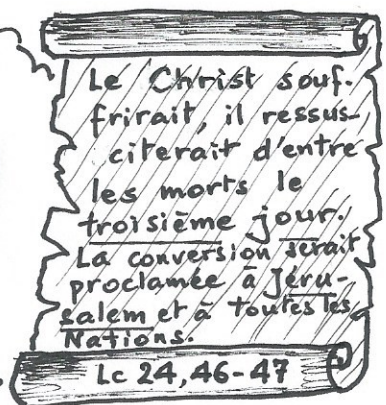 Le Christ souf-
frirait, il ressus-
citerait d'entre
les morts le
troisième jour.
La conversion serait
proclamée à Jéru-
salem et à toutes les
Nations.
Lc 24, 46-47